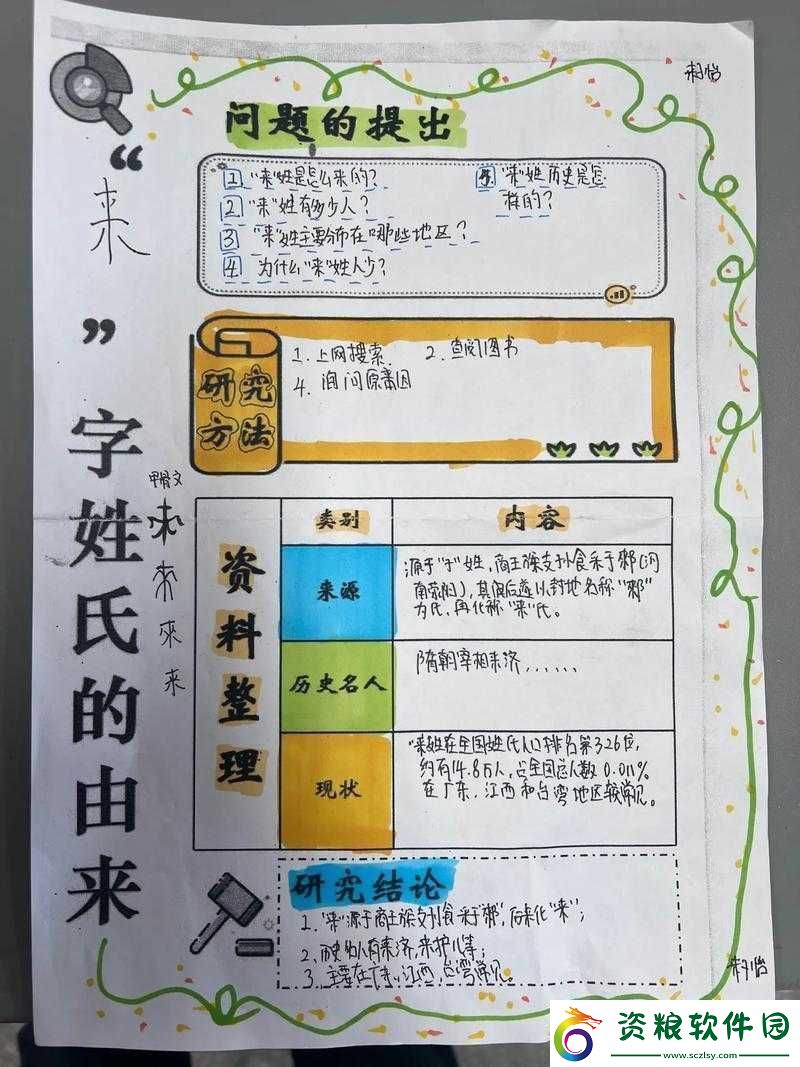 问题的提出
1 "来"姓是怎么来的？
2 "来"姓有多少人？
3 "来"姓主要分布在哪些地区？
4 为什么"来"姓人少？
5 "来"姓历史是怎样的？
"来"字姓氏的由来
甲骨文
來 來 来
研究方法
1. 上网搜索
2. 查阅图书
4. 询问原因
资料整理
类别
内容
来源
源于"子"姓，商王族支孙食采于郲(河
南荥阳)，其后遂以封地名称"郲"
为氏，再化称"来"氏。
历史名人
隋朝宰相来济......
现状
"来姓在全国姓氏人口排名第326位，
约有14.8万人，占全国总人数0.011%
在广东、江西和台湾地区较常见。
研究结论
1. "来"源于商王族支孙食采于郲"，后来化"来"；
2. 历史名人有来济，来护儿等；
3. 主要在广东、江西、台湾常见。
资粮软件园
www.sczlsy.com